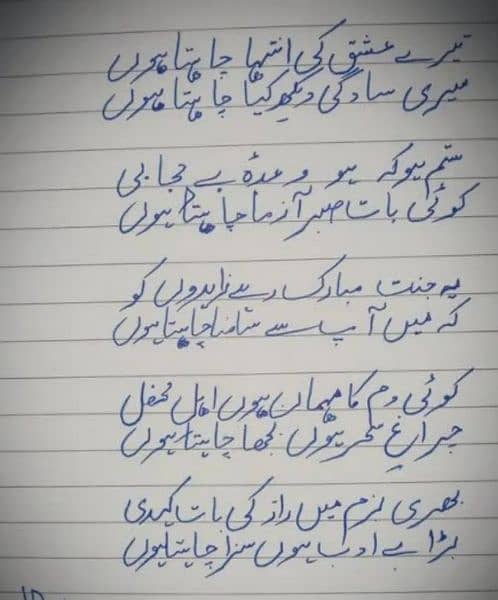 تیرے عشق کی انتہا چاہتا ہوں
میری سادگی دیکھ کیا چاہتا ہوں
ستم ہو کہ ہو وعدہ بے حجابی
کوئی بات صبر آزما چاہتا ہوں
یہ جنت مبارک رہے زاہدوں کو
کہ میں آپ سے سامنا چاہتا ہوں
کوئی دم کا مہماں ہوں اہل محفل
چراغِ سحر ہوں بجھا چاہتا ہوں
بھری بزم میں راز کی بات کہدی
بڑا بے ادب ہوں سزا چاہتا ہوں